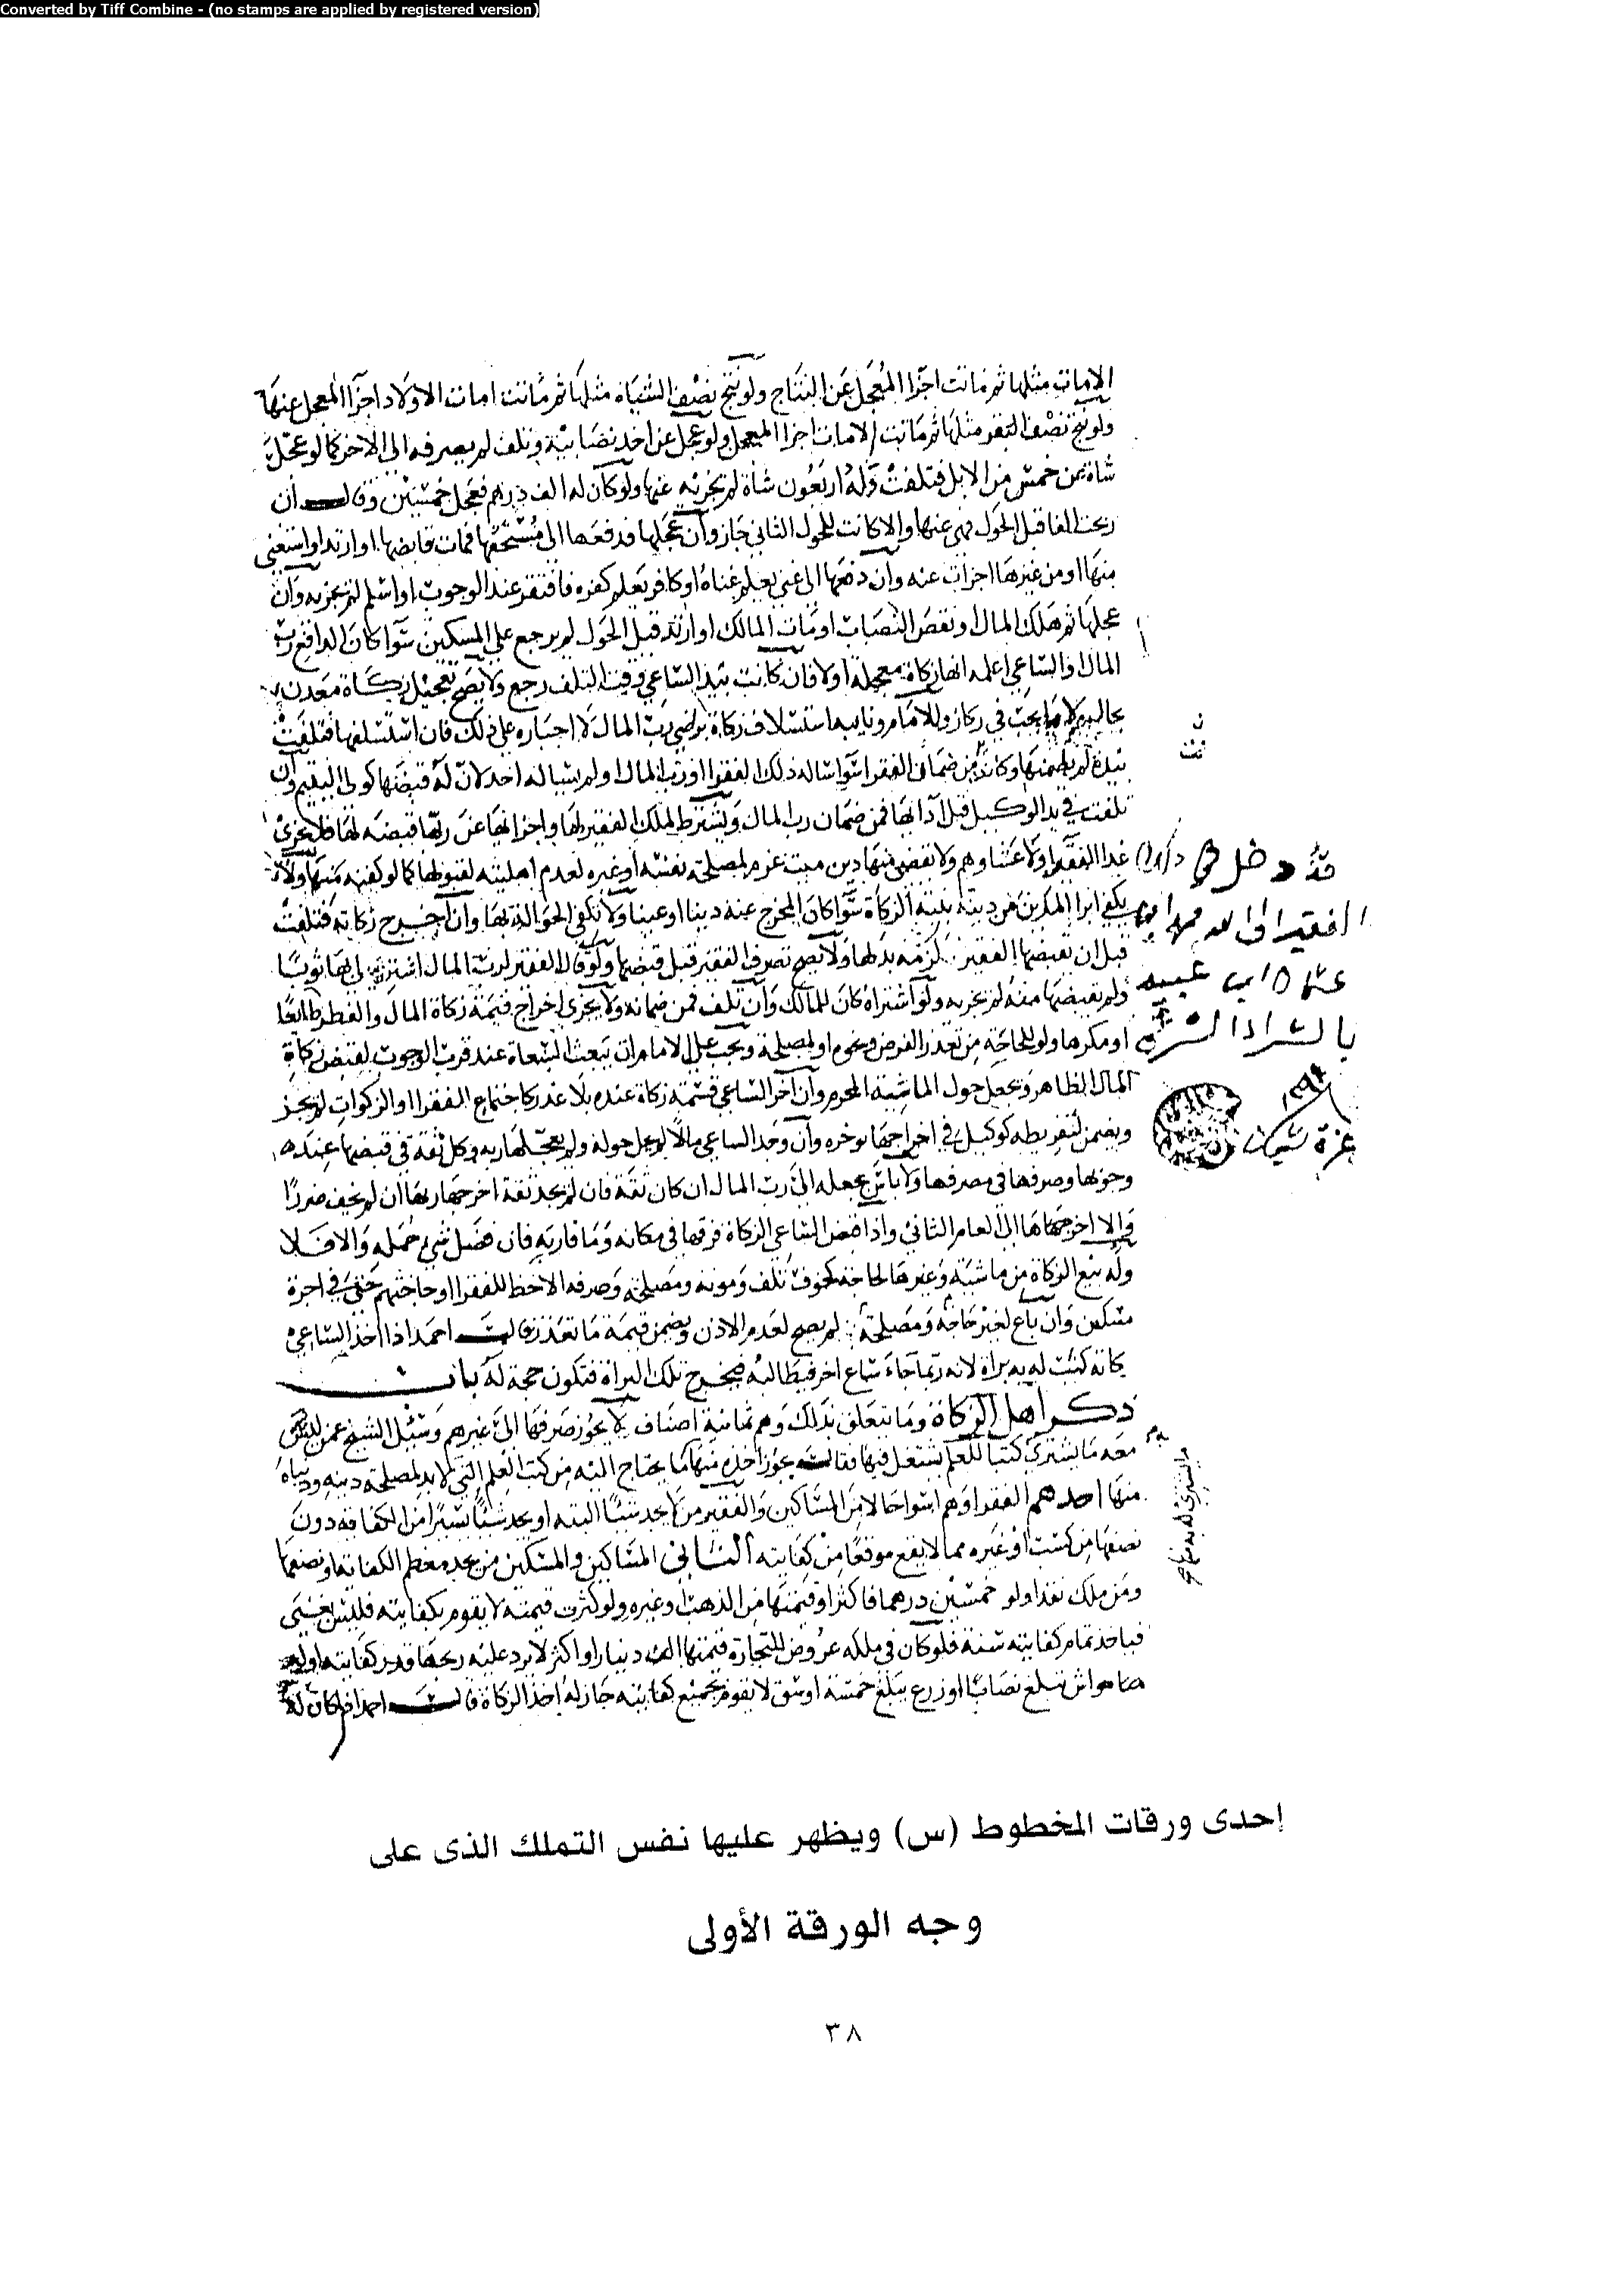 Converted by Tiff Combine - (no stamps are applied by registered version)
الامات مثلها ثم ماتت اجزا المعجل عن النتاج ولو نتج نصف الشياه مثلها ثم ماتت امات الاولاد اجزا المعجل عنها
ولو نتج نصف البقر مثلها ثم ماتت الامات اجزا المعجل ولو عجل عن احد نصابيه وتلف لم يصرفه الى الاخر كما لو عجل
شاة عن خمس من الابل فتلفت وله اربعون شاة لم تجزيه عنها ولو كان له الف درهم فعجل خمسين وقال ان
ربحت الفا قبل الحول فهي عنها والا كانت للحول الثاني جاز وان عجلها فدفعها الى مستحقها فمات قابضها او ارتد او استغنى
منها او من غيرها اجزات عنه وان دفعها الى غني يعلم غناه او كافر يعلم كفره فافتقر عند الوجوب او اسلم لم تجزيه وان
عجلها ثم هلك المال او نقص النصاب او مات المالك او ارتد قبل الحول لم يرجع على المسكين سوا كان الدافع رب
المال او الساعي اعلمه انها زكاة معجلة اولا فان كانت بيد الساعي وقت التلف رجع ولا يصح تعجيل زكاة معدن
بحال ولا ما يجب في ركاز وللامام ونايبه استسلاف زكاة برضى رب المال لا اجباره على ذلك فان استسلفها فتلفت
بيده لم يضمنها وكانت من ضمان الفقرا سوا ساله ذلك الفقرا او رب المال او لم يساله احد لان له قبضها كولي اليتيم وان
تلفت في يد الوكيل قبل ادايها فمن ضمان رب المال ويشترط لملك الفقير لها واجزايها عن ربها قبضه لها فلا يجزئ
غدا الفقرا ولا عشاوهم ولا تقضى منها دين ميت غرم لمصلحة نفسه او غيره لعدم اهليته لقبولها كما لو كفنه منها ولا
يكفي ابرا المدين من دينه بنية الزكاة سوا كان المخرج عنه دينا او عينا ولا تكفي الحوالة بها وان اخرج زكاته فتلفت
قبل ان يقبضها الفقير لزمه بدلها ولا يصح تصرف الفقير قبل قبضها ولو قال الفقير لرب المال اشتر لي بها ثوبا
ولم يقبضها منه لم تجزيه ولو اشتراه كان للمالك وان تلف فمن ضمانه ولا يجزي اخراج قيمة زكاة المال والفطر طايعا
او مكرها ولو للحاجة من تعذر الفرض ونحوه او لمصلحة ويجب على الامام ان يبعث السعاة عند قرب الوجوب لقبض زكاة
المال الظاهر ويجعل حول الماشية المحرم وان اخر الساعي قسمة زكاة عنده بلا عذر كاجتماع الفقرا او الزكوات لم يجز
ويضمن لتفريطه كوكيل في اخراجها يوخره وان وجد الساعي مالا لم يحل حوله ولم يعجلها ربه وكل ثقة في قبضها عنده
وجوبها وصرفها في مصرفها ولا باس بجعله الى رب المال ان كان ثقة فان لم يجد ثقة اخرجها ربها ان لم يخف ضررا
والا اخرجها الى العام الثاني واذا قبض الساعي الزكاة فرقها في مكانه وما قاربه فان فضل شي حمله والا فلا
وله بيع الزكاة من ماشية وغيرها لحاجة كخوف تلف ومونة ومصلحة وصرفه الاحظ للفقرا او حاجتهم حتى في اجرة
مسكن وان باع لغير حاجة ومصلحة لم يصح لعدم الاذن ويضمن قيمة ما تعذر قال احمد اذا اخذ الساعي
زكاته كتب له به براة لانه ربما جاء ساع اخر فيطالبه فيخرج تلك البراة فتكون حجة له باب
ذكر اهل الزكاة وما يتعلق بذلك وهم ثمانية اصناف لا يجوز صرفها الى غيرهم وسئل الشيخ عمن ليس
معه ما يشتري كتبا للعلم يشتغل فيها فقال يجوز اخذه منها ما يحتاج اليه من كتب العلم التي لا بد لمصلحة دينه ودنياه
منها احدهم الفقرا وهم اسوا حالا من المساكين والفقير من لا يجد شيئا البته او يجد شيئا يسيرا من الكفاية دون
نصفها من كسب او غيره مما لا يقع موقعا من كفايته الثاني المساكين والمسكين من يجد معظم الكفاية او نصفها
ومن ملك نقدا ولو خمسين درهما فاكثر او قيمتها من الذهب او غيره ولو كثرت قيمته لا يقوم بكفايته فليس بغني
فياخذ تمام كفايته سنة فلو كان في ملكه عروض للتجارة قيمتها الف دينار او اكثر لا يرد عليه ربحها قدر كفايته او له
مواش تبلغ نصابا او زرع يبلغ خمسة اوسق لا يقوم بجميع كفايته جاز له اخذ الزكاة قال احمد اذا كان له
قد دخل في
الفقير الى الله
عثمان ابن عبيد
بالشراء الشرعي
١٢٩٨
إحدى ورقات المخطوط (س) ويظهر عليها نفس التملك الذى على
وجه الورقة الأولى
٣٨